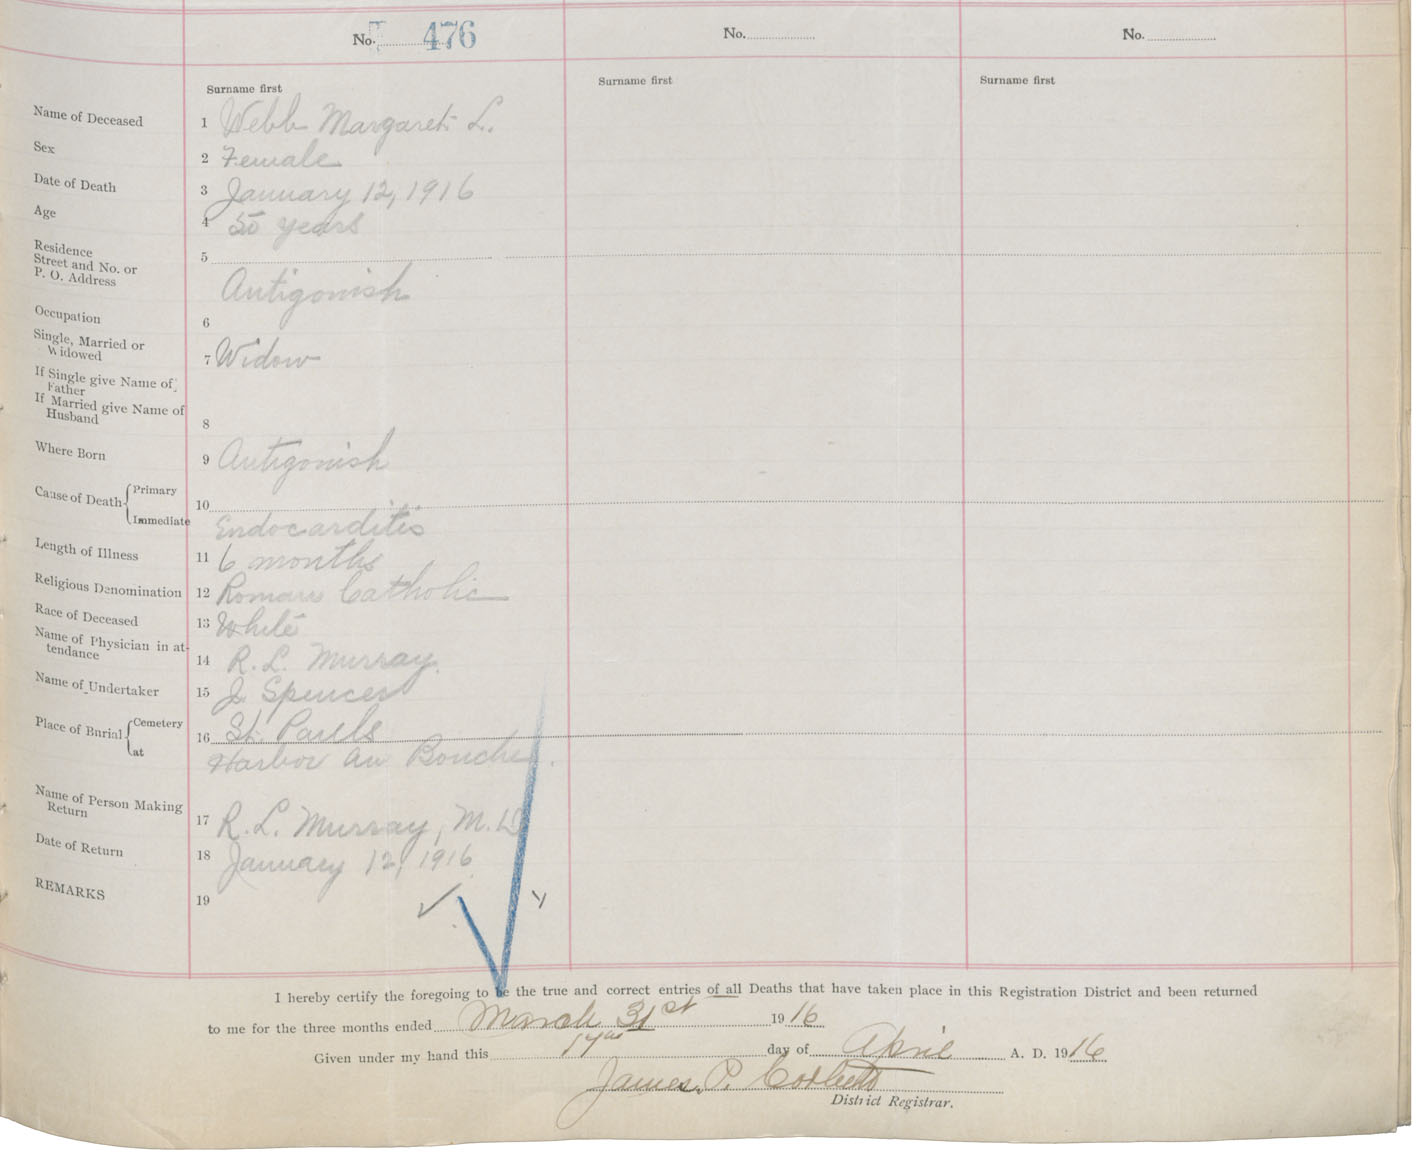 No. 476 No. No.
Surname first Surname first Surname first
Name of Deceased 1 Webb Margaret L.
Sex 2 Female
Date of Death 3 January 12, 1916
Age 4 50 years
Residence
Street and No. or 5
P. O. Address Antigonish
Occupation 6
Single, Married or
Widowed 7 Widow
If Single give Name of
Father
If Married give Name of
Husband 8
Where Born 9 Antigonish
Cause of Death Primary 10
Immediate Endocarditis
Length of Illness 11 6 months
Religious Denomination 12 Roman Catholic
Race of Deceased 13 White
Name of Physician in at-
tendance 14 R. L. Murray.
Name of Undertaker 15 J. Spencer
Place of Burial Cemetery 16 St. Pauls
at Harbor au Bouche.
Name of Person Making
Return 17 R. L. Murray, M.D
Date of Return 18 January 12, 1916
REMARKS 19
I hereby certify the foregoing to be the true and correct entries of all Deaths that have taken place in this Registration District and been returned
to me for the three months ended March 31st 1916
Given under my hand this day of April A. D. 1916
James. P. Corbett
District Registrar.